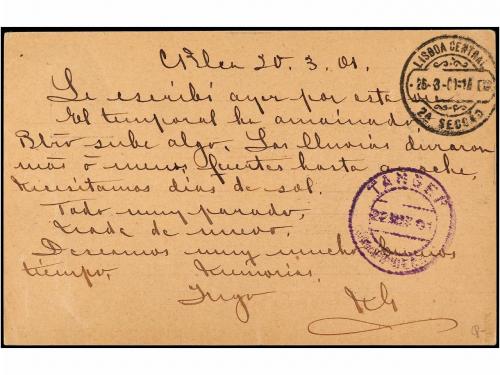 CBlca 20. 3. 01.
Le escribí ayer por esta
El temporal ha amainado,
Btro sube algo. Las lluvias duraron
más ó menos fuertes hasta anoche,
necesitamos días de sol.
Todo muy parado,
Nada de nuevo.
Deseamos muy mucho buenos
tiempo. Memorias.
Suyo
LISBOA CENTRAL
26-3-01
2A SECÇÃO
TANGER